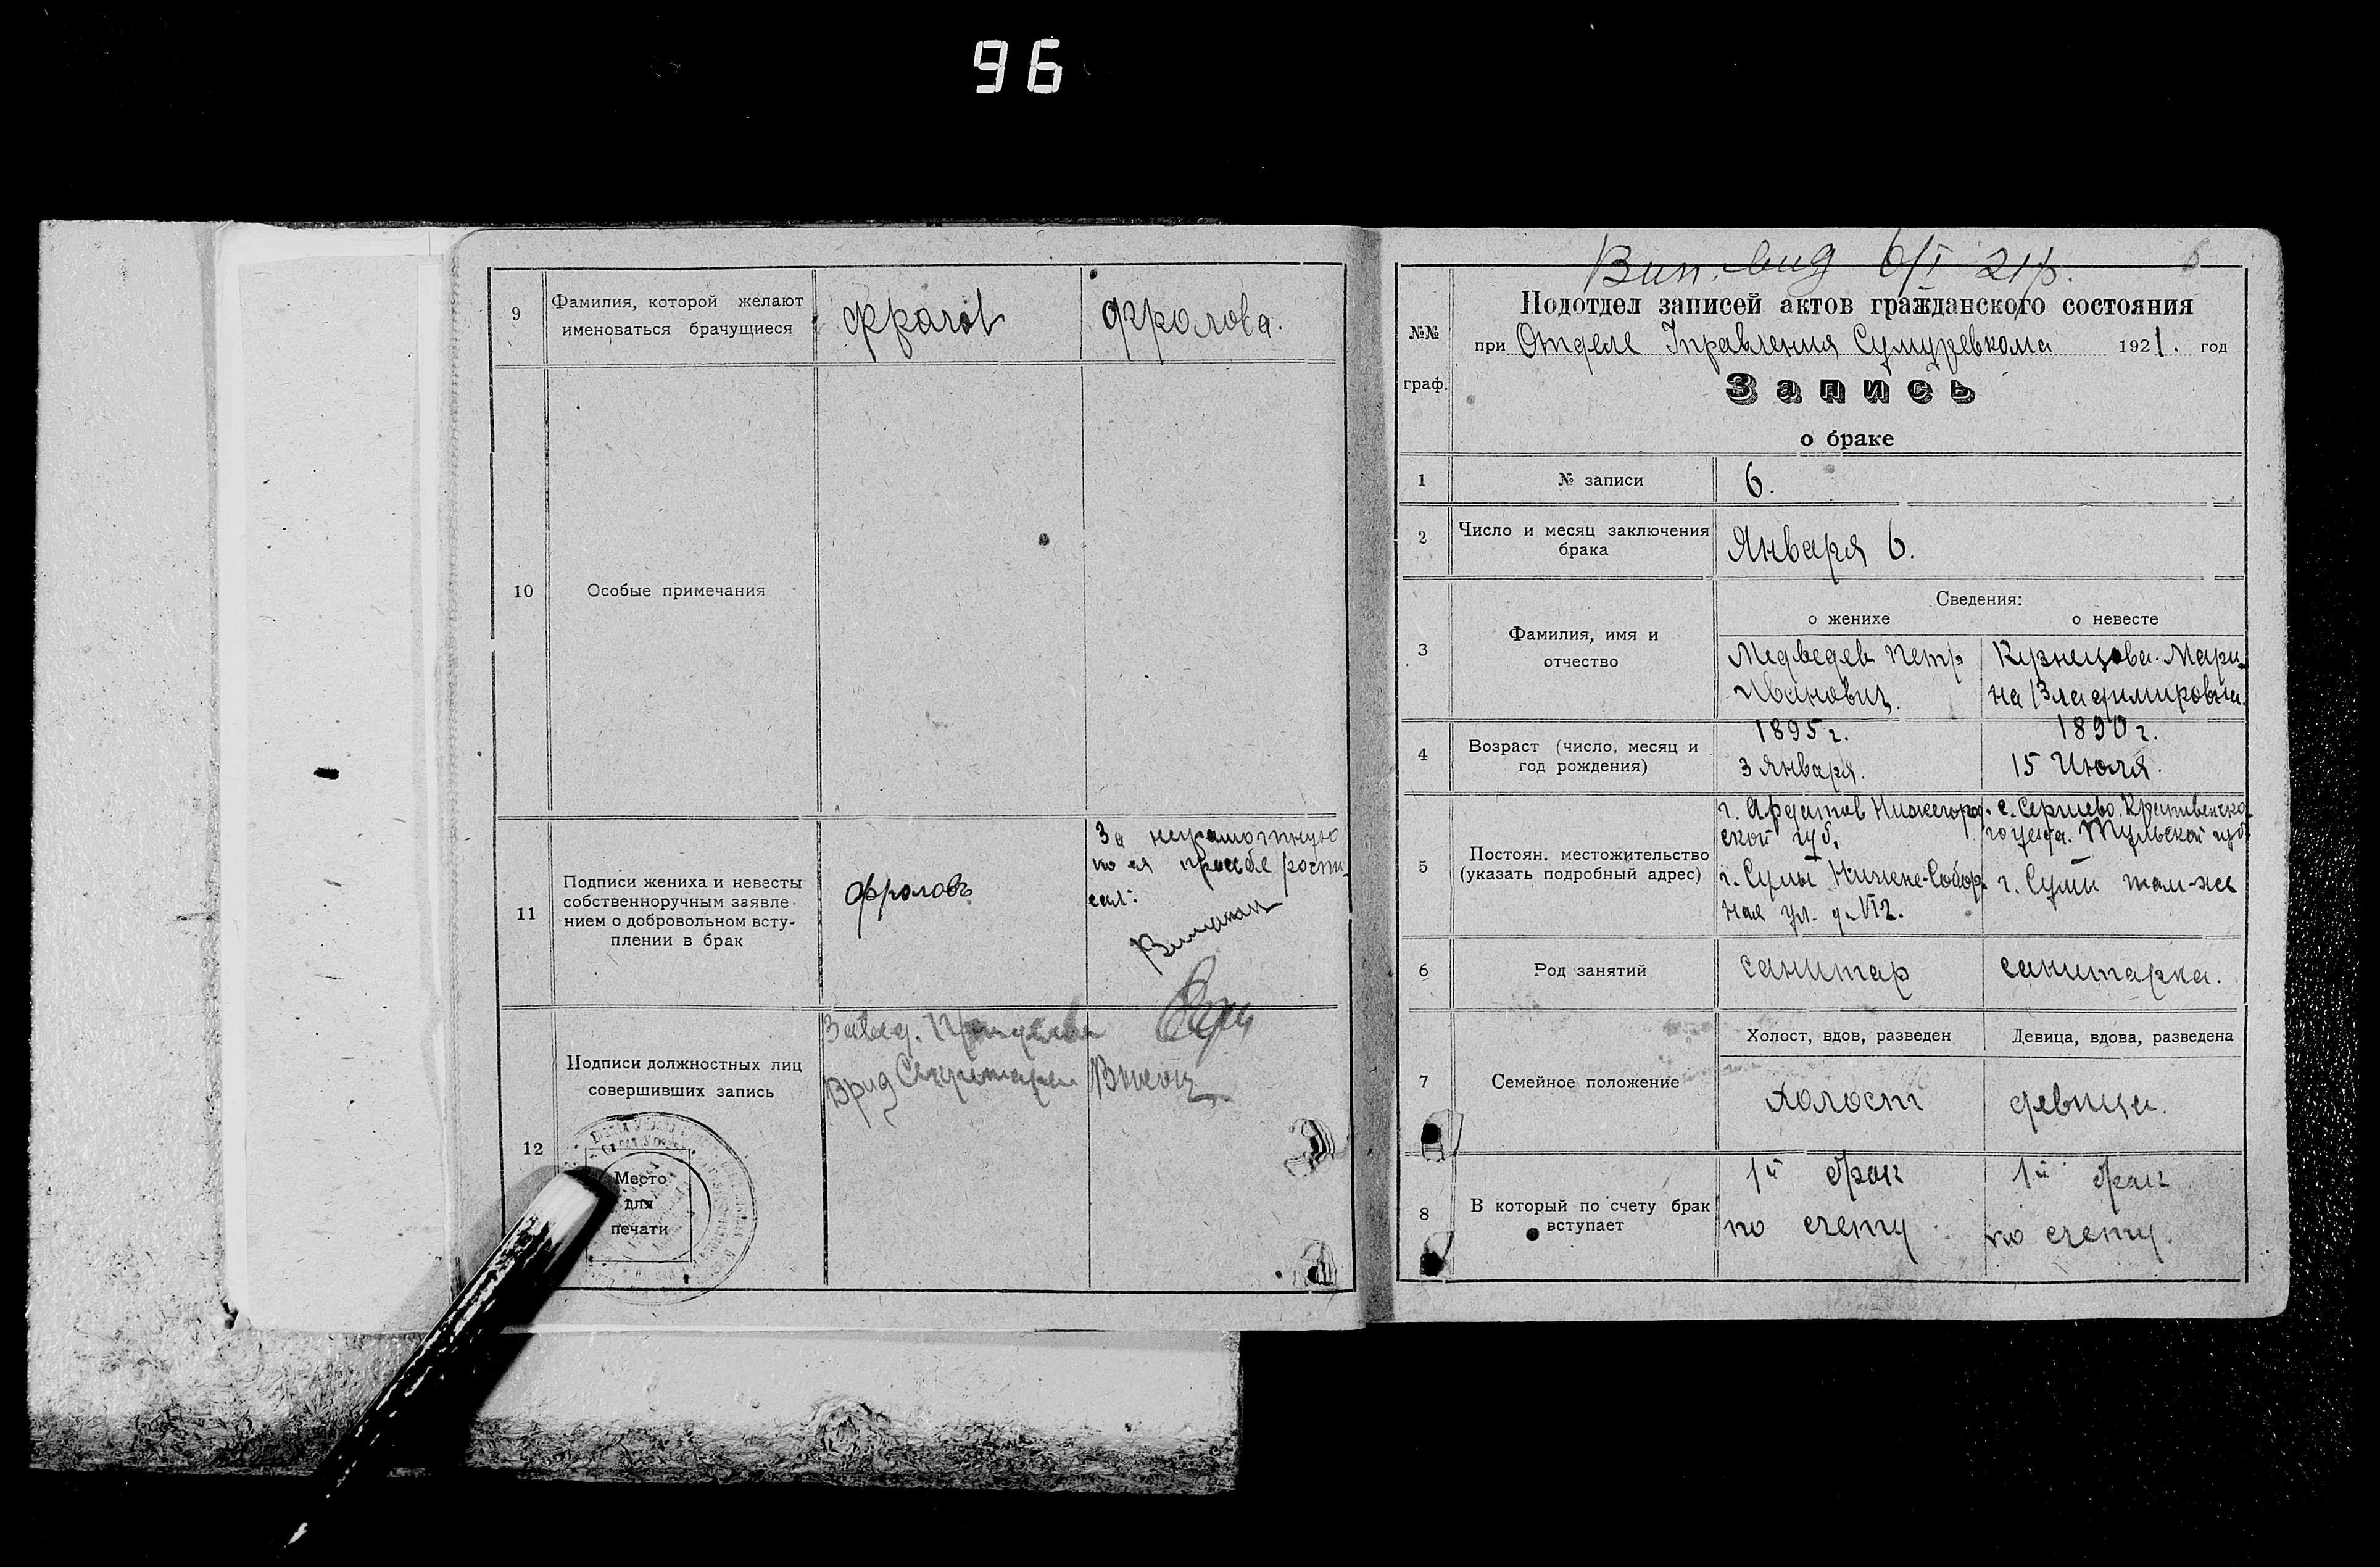 96
9
Фамилия, которой желают
именоваться брачущиеся
Фролов
Фролова.
10
Особые примечания
11
Подписи жениха и невесты
собственноручным заявле-
нием о добровольном всту-
плении в брак
Фроловъ
За неграмотную
по ея просьбе роспи-
сал:
12
Подписи должностных лиц
совершивших запись
Завед.
Врид Секретаря
Место
для
печати
Вип. вид 6/I 21р.
6
№№
граф.
Подотдел записей актов гражданского состояния
при Отделе Управления Сумуревкома 1921. год
Запись
о браке
1
№ записи
6.
2
Число и месяц заключения
брака
Января 6.
3
Фамилия, имя и
отчество
Сведения:
о женихе
о невесте
Медведев Петр
Иванович.
Кузнецова Мари-
на Владимировна.
4
Возраст (число, месяц и
год рождения)
1895 г.
3 Января.
1890 г.
15 Июля.
5
Постоян. местожительство
(указать подробный адрес)
г. Ардатов Нижегород-
ской губ.
г. Сумы Нижне-Собор-
ная ул. д. №12.
с. Сергиево Крапивенско-
го уезда. Тульской губ.
г. Сумы там-же
6
Род занятий
санитар
санитарка.
7
Семейное положение
Холост, вдов, разведен
Девица, вдова, разведена
холост
девица.
8
В который по счету брак
вступает
1й брак
по счету
1й брак
по счету.